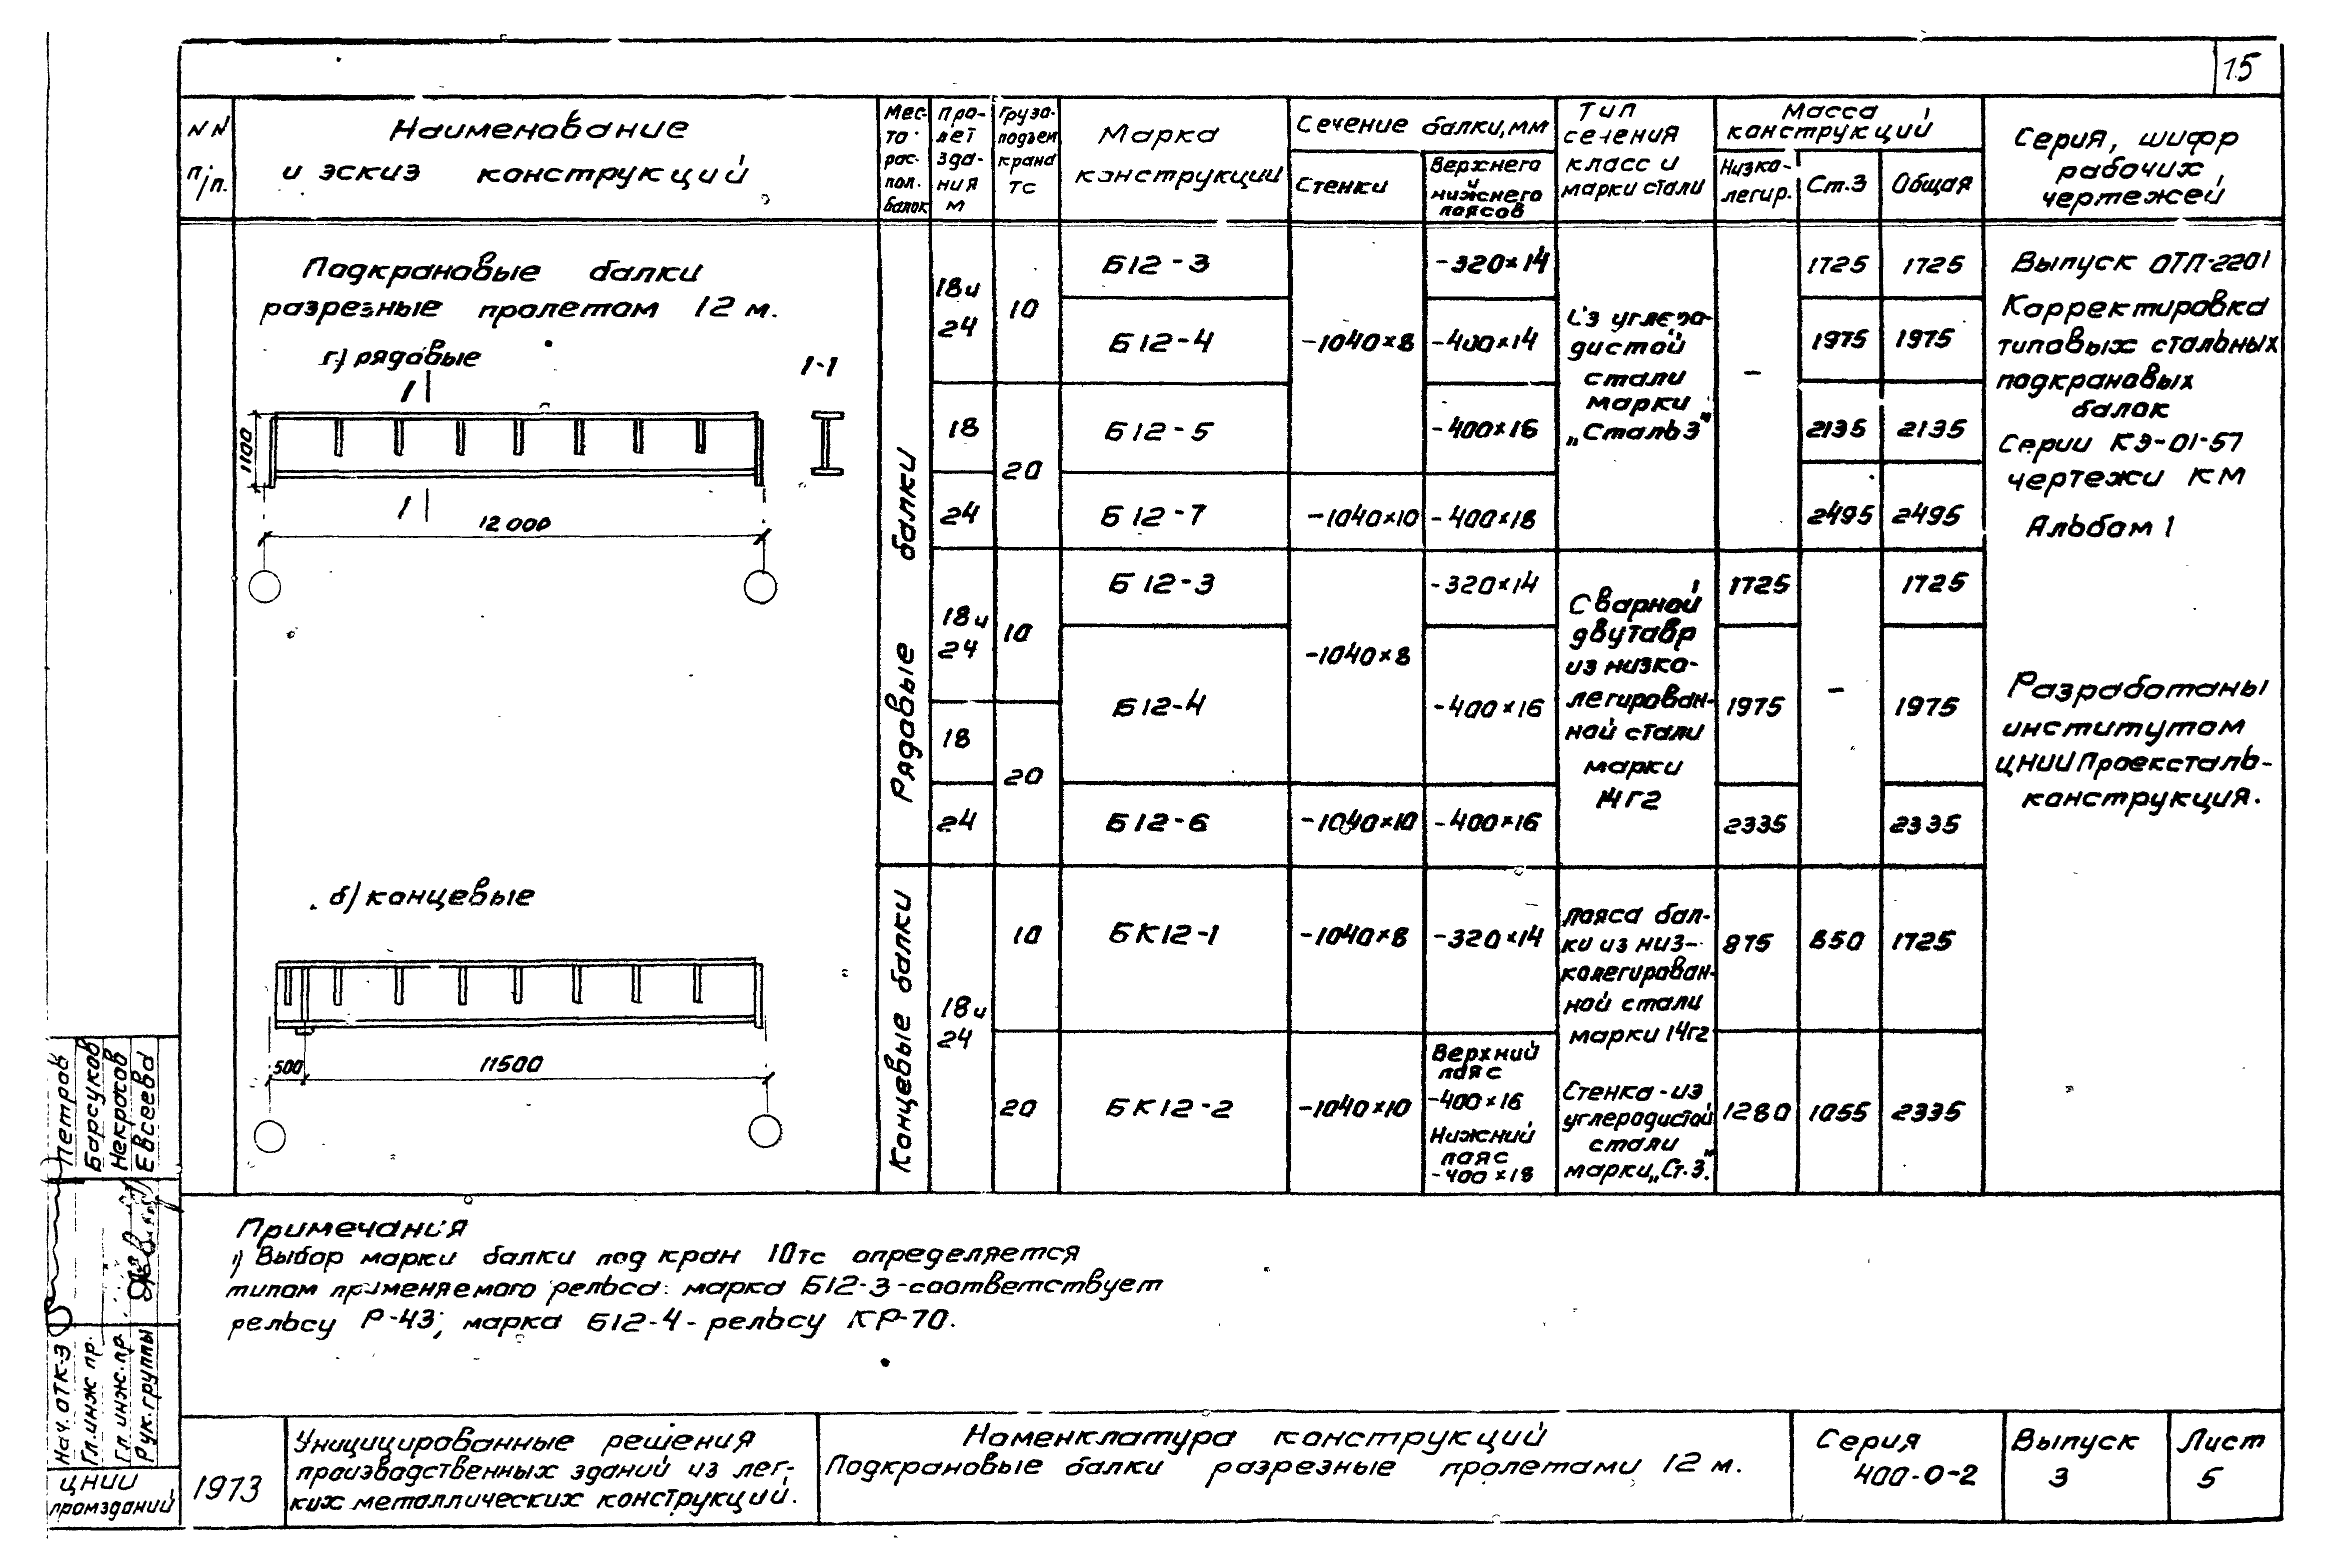 15
NN п/п.
Наименование
и эскиз конструкций
Место рас-пол. балок
Про-лет зда-ния м
Грузо-подъем крана тс
Марка
конструкции
Сечение балки, мм
Стенки
Верхнего и нижнего поясов
Тип сечения класс и марки стали
Масса конструкций
Низко-легир.
Ст.3
Общая
Серия, шифр
рабочих
чертежей
Подкрановые балки
разрезные пролетом 12 м.
г.) рядовые
1
1-1
1100
1
12 000
б) концевые
500
11500
Рядовые балки
Концевые балки
18 и 24
10
Б12-3
-320×14
1725
1725
Б12-4
-1040×8
-400×14
1975
1975
18
20
Б12-5
-400×16
2135
2135
24
Б12-7
-1040×10
-400×18
2495
2495
Из углеро-
дистой
стали
марки
„Сталь3"
-
18 и 24
10
Б12-3
-1040×8
-320×14
1725
1725
Б12-4
-400×16
1975
-
1975
18
20
24
Б12-6
-1040×10
-400×16
2335
2335
Сварной
двутавр
из низко-
легирован-
ной стали
марки
14Г2
18 и 24
10
БК12-1
-1040×8
-320×14
875
850
1725
20
БК12-2
-1040×10
Верхний
пояс
-400×16
Нижний
пояс
-400×18
1280
1055
2335
пояса бал-
ки из низ-
колегирован-
ной стали
марки 14г2
Стенка-из
углеродистой
стали
марки „Ст.3."
Выпуск ОТП-2201
Корректировка
типовых стальных
подкрановых
балок
Серии КЭ-01-57
чертежи КМ
Альбом 1
Разработаны
институтом
ЦНИИПроексталь-
конструкция.
Примечания
1) Выбор марки балки под кран 10тс определяется
типом применяемого рельса: марка Б12-3-соответствует
рельсу Р-43; марка Б12-4-рельсу КР-70.
Петров
Барсуков
Некрасов
Евсеева
Нач. ОТК-3
Гл.инж пр.
Гл.инж.пр
Рук.группы
ЦНИИ
промзданий
1973
Уницицированные решения
производственных зданий из лег-
ких металлических конструкций.
Номенклатура конструкций
Подкрановые балки разрезные пролетами 12 м.
Серия
400-0-2
Выпуск
3
Лист
5